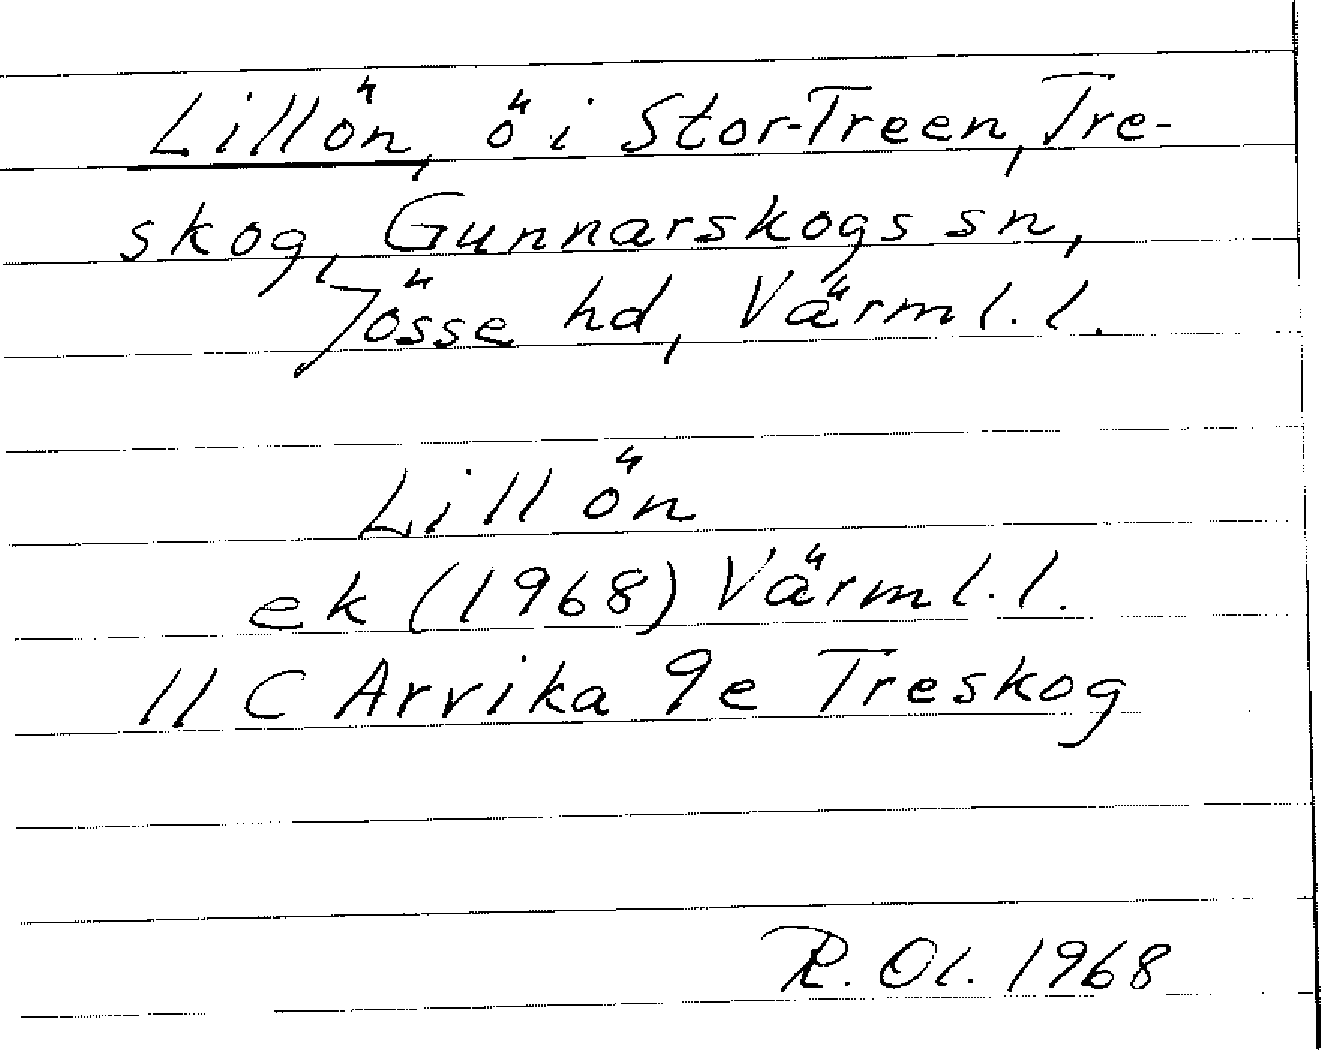 Lillön, ö i Stor-Treen, Tre-
skog, Gunnarskogs sn,
Jösse hd, Värml. l.
Lillön
ek (1968) Värml. l.
11 C Arvika 9e Treskog
R. Ol. 1968